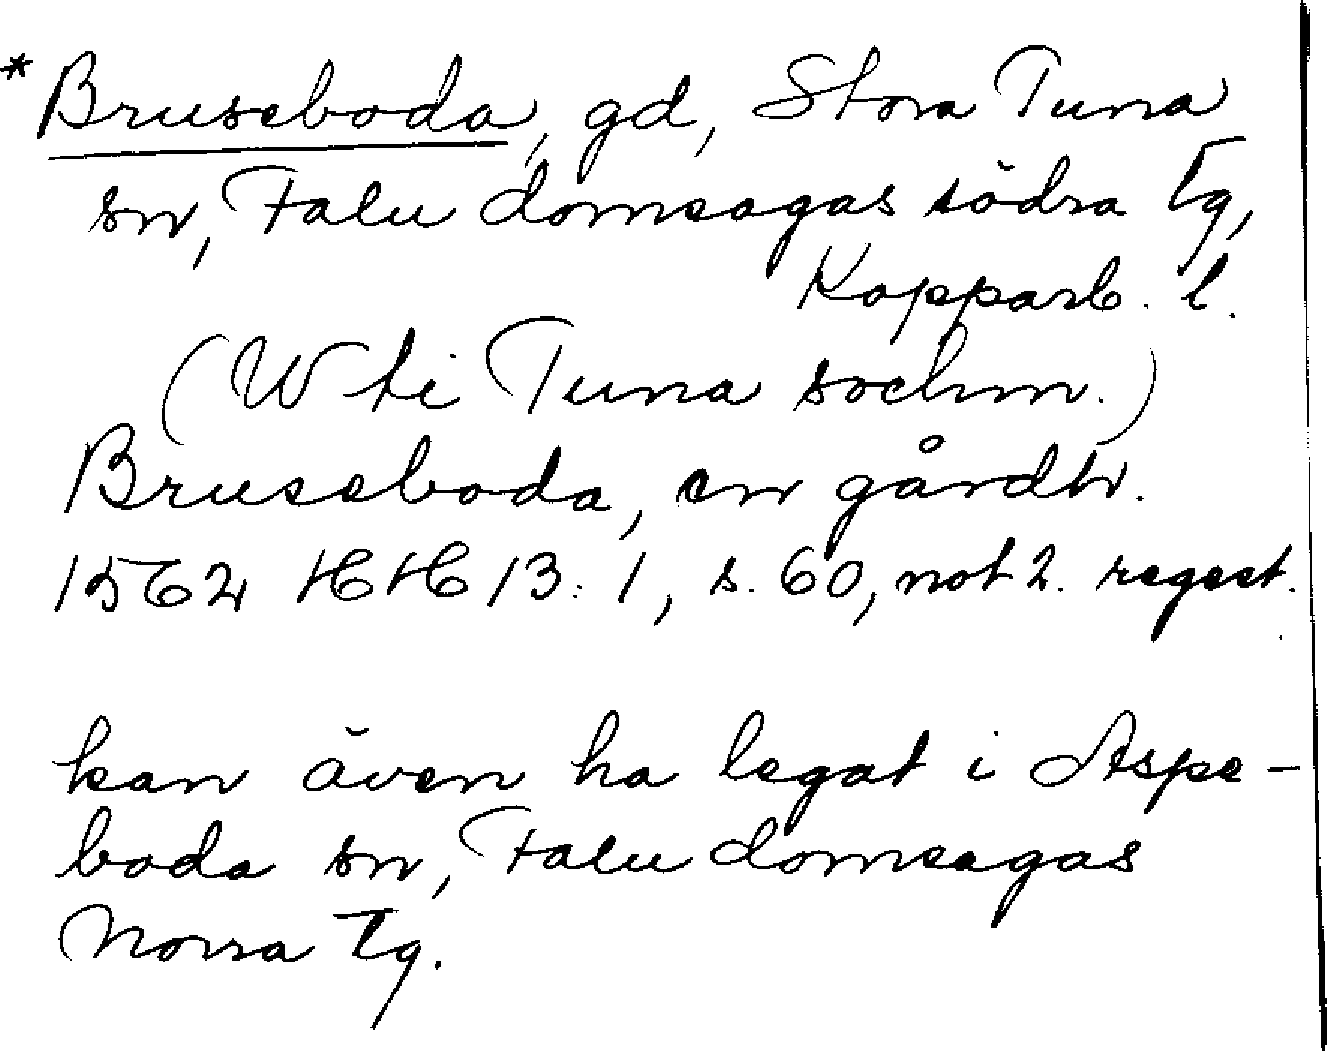 *Bruseboda, gd, Stora Tuna
sn, Falu domsagas södra Tg,
Kopparb. l.
(W ti Tuna sochnn.)
Bruseboda, en gårdtr.
1562 HH 13:1, s. 60, not 2. regest.
kan även ha legat i Aspe-
boda sn, Falu domsagas
Norra Tg.